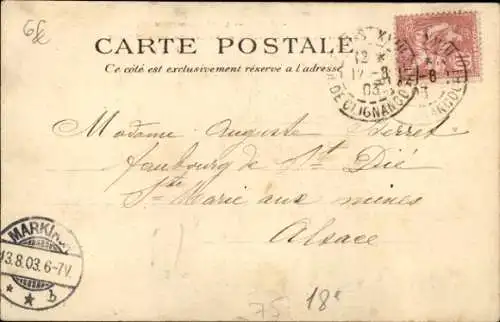 CARTE POSTALE
Ce côté est exclusivement réservé à l'adresse
12 *
12 -8
03
DE CLIGNANCO
-8
03
10
Madame Auguste
faubourg de St Dié
Ste Marie aux mines
Alsace
MARKIR
13.8.03.6-7V.
* * b
75 18e